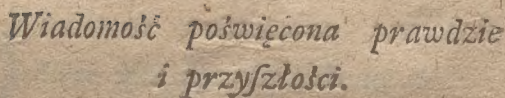 Wiadomość poświęcona prawdzie
i przyſzłości.